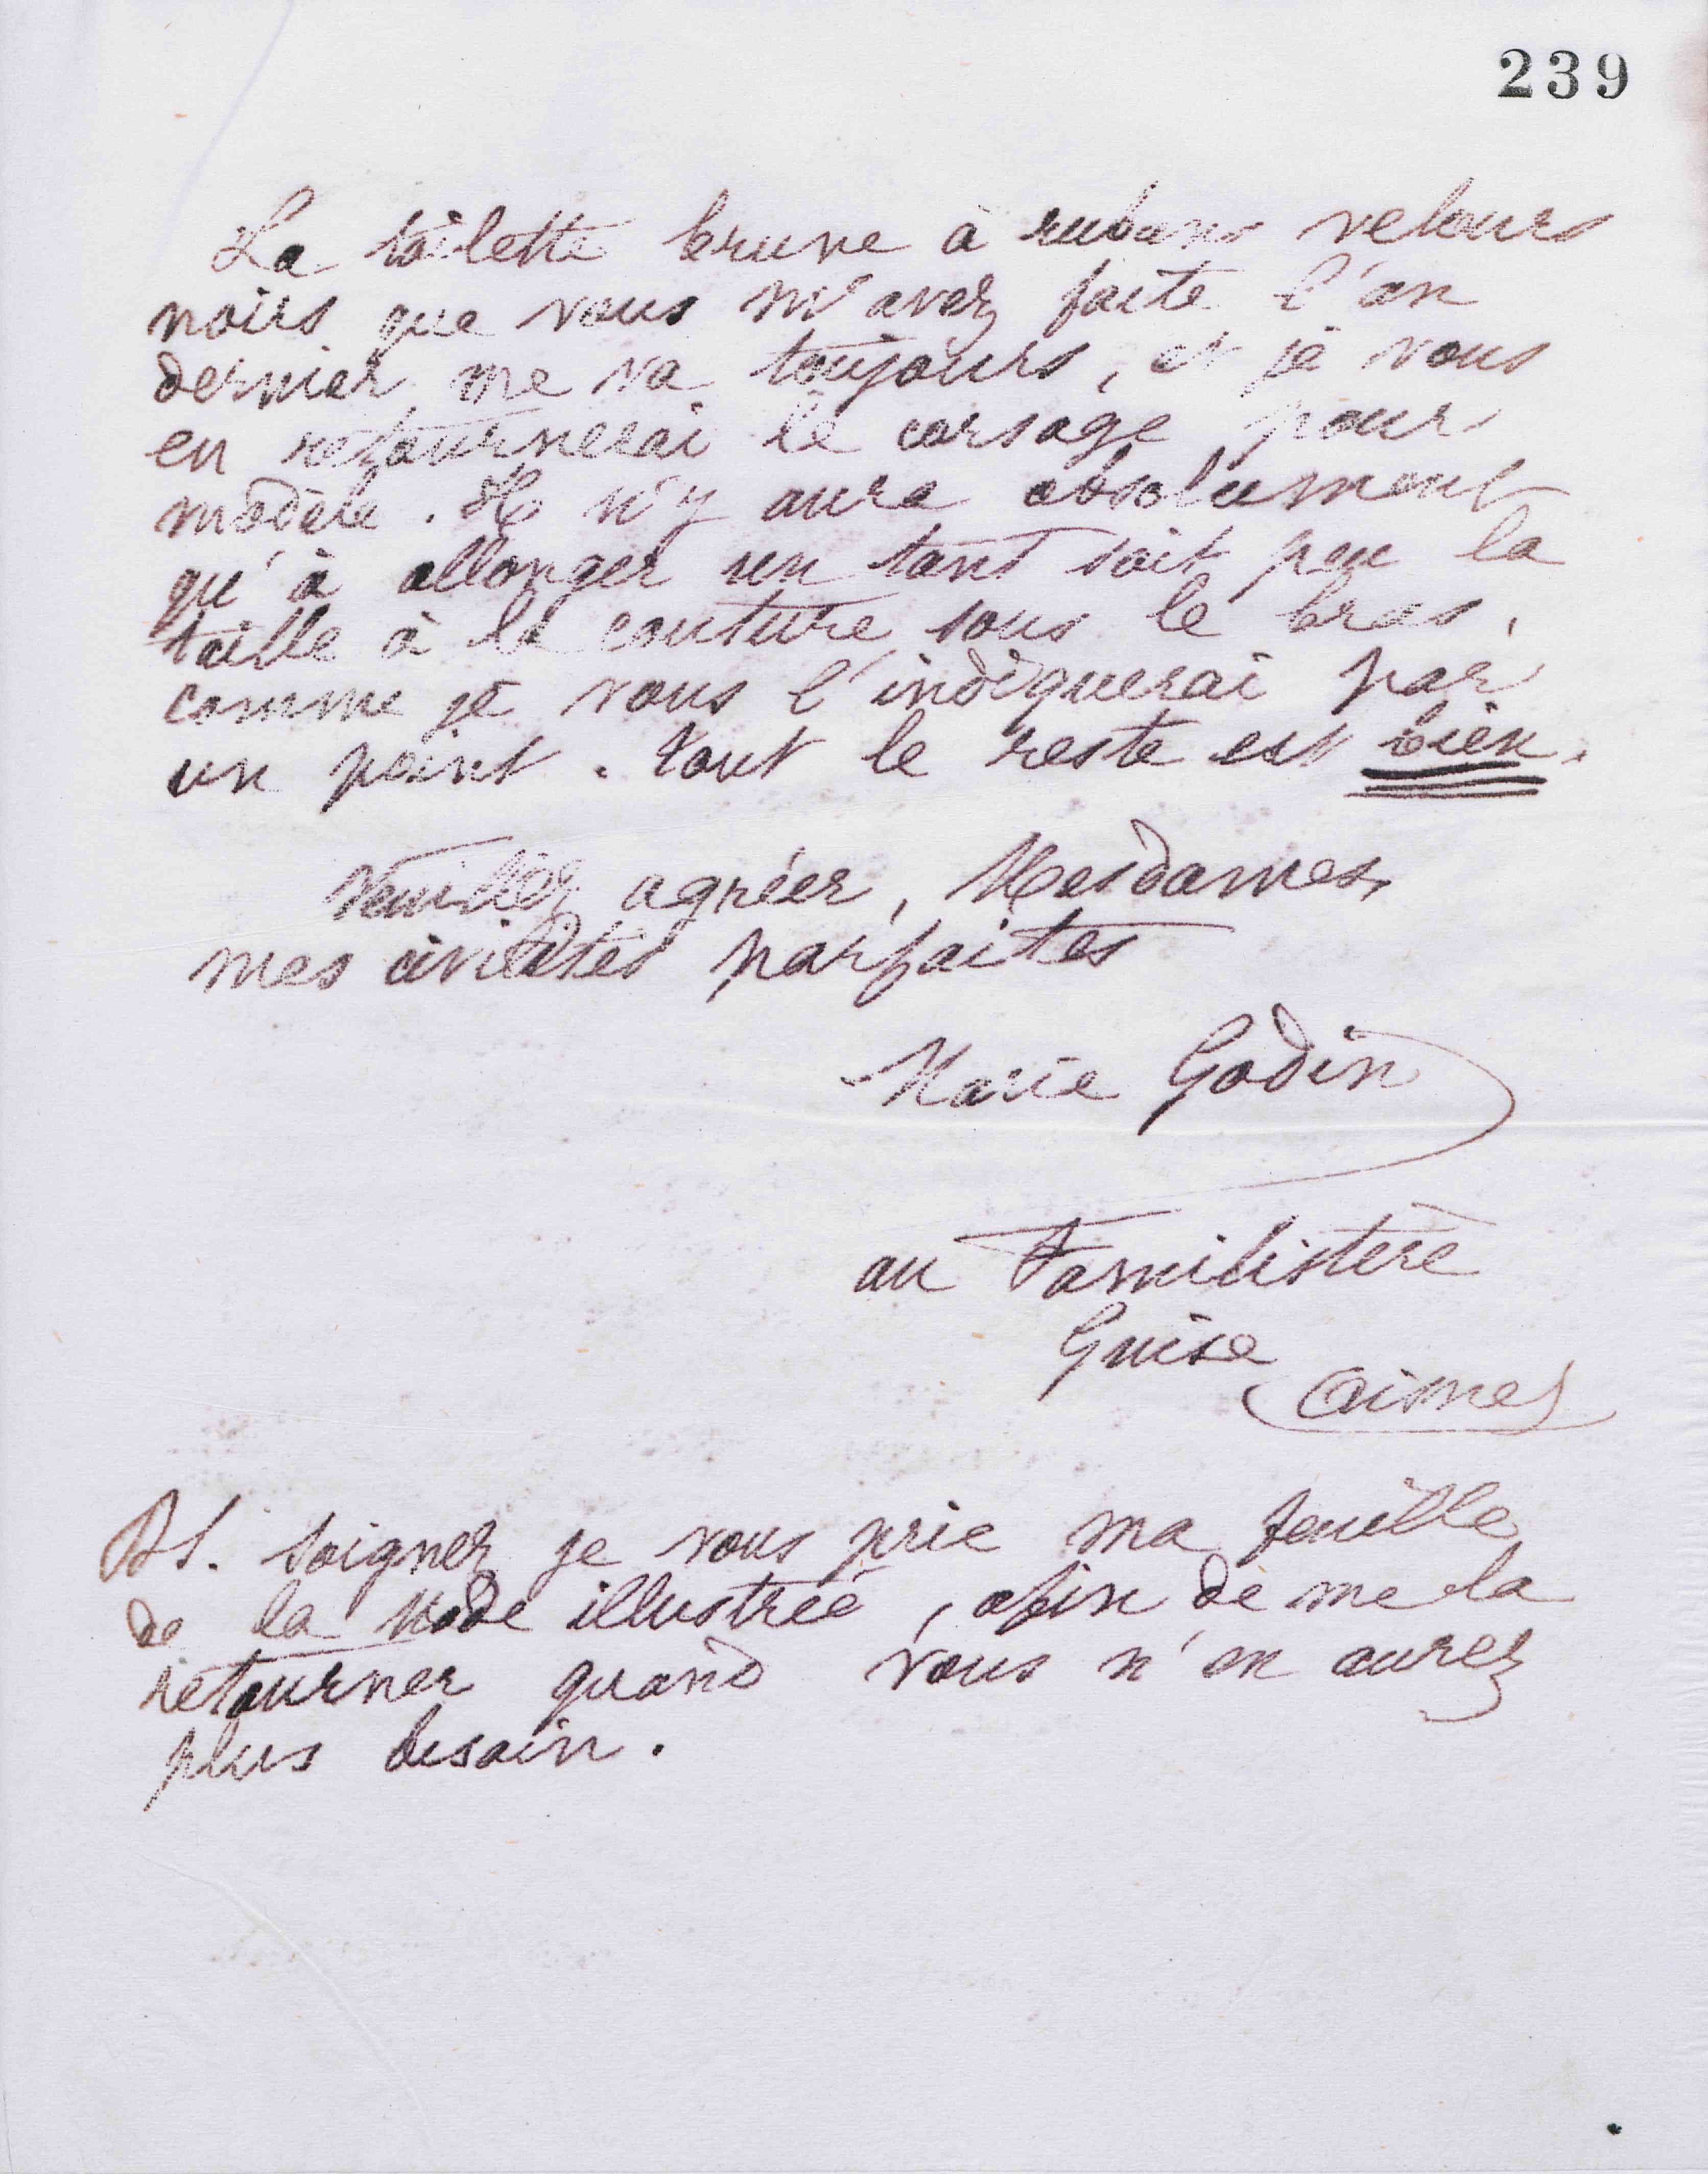 239
La toilette brune à rubans velours
noirs que vous m'avez faite l'an
dernier me va toujours, et je vous
en retournerai le corsage pour
modèle. Il n'y aura absolument
qu'à allonger un tant soit peu la
taille à la couture sous le bras,
comme je vous l'indiquerai par
un point. tout le reste est bien.
Veuillez agréer, Mesdames,
mes civilités parfaites
Marie Godin
au Familistère
Guise
(Aisne)
PS. Soignez je vous prie ma feuille
de la Mode illustrée, afin de me la
retourner quand vous n'en aurez
plus besoin.